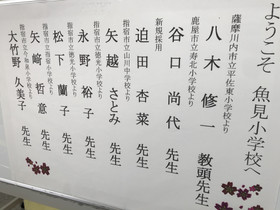 ようこそ 魚見小学校へ
薩摩川内市立平佐東小学校より
八木 修一 教頭先生
鹿屋市立寿北小学校より
谷口 尚代 先生
新規採用
迫田 杏菜 先生
指宿市立山川中学校より
矢越 さとみ 先生
指宿市立徳光小学校より
永野 裕子 先生
指宿市立徳光小学校より
松下 蘭子 先生
指宿市立
矢﨑 哲意 先生
指宿市立今和泉小学校より
大竹野 久美子 先生